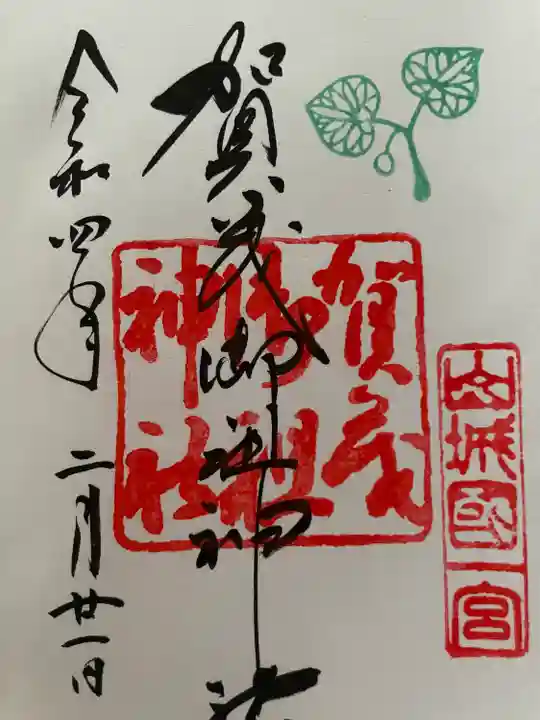 山城國一宮
賀茂御祖神社
賀茂
御祖
神社
令和四年 二月廿一日